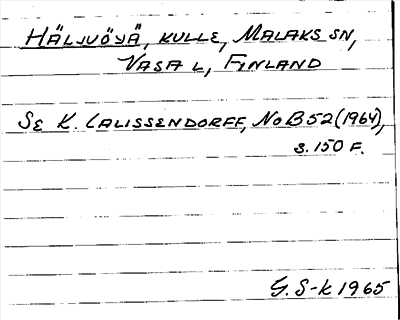 HÄLJVÖJÄ, KULLE, MALAKS SN,
VASA L, FINLAND
SE K. LALISSENDORFF, NoB 52 (1964),
s. 150 F.
G. S-k 1965